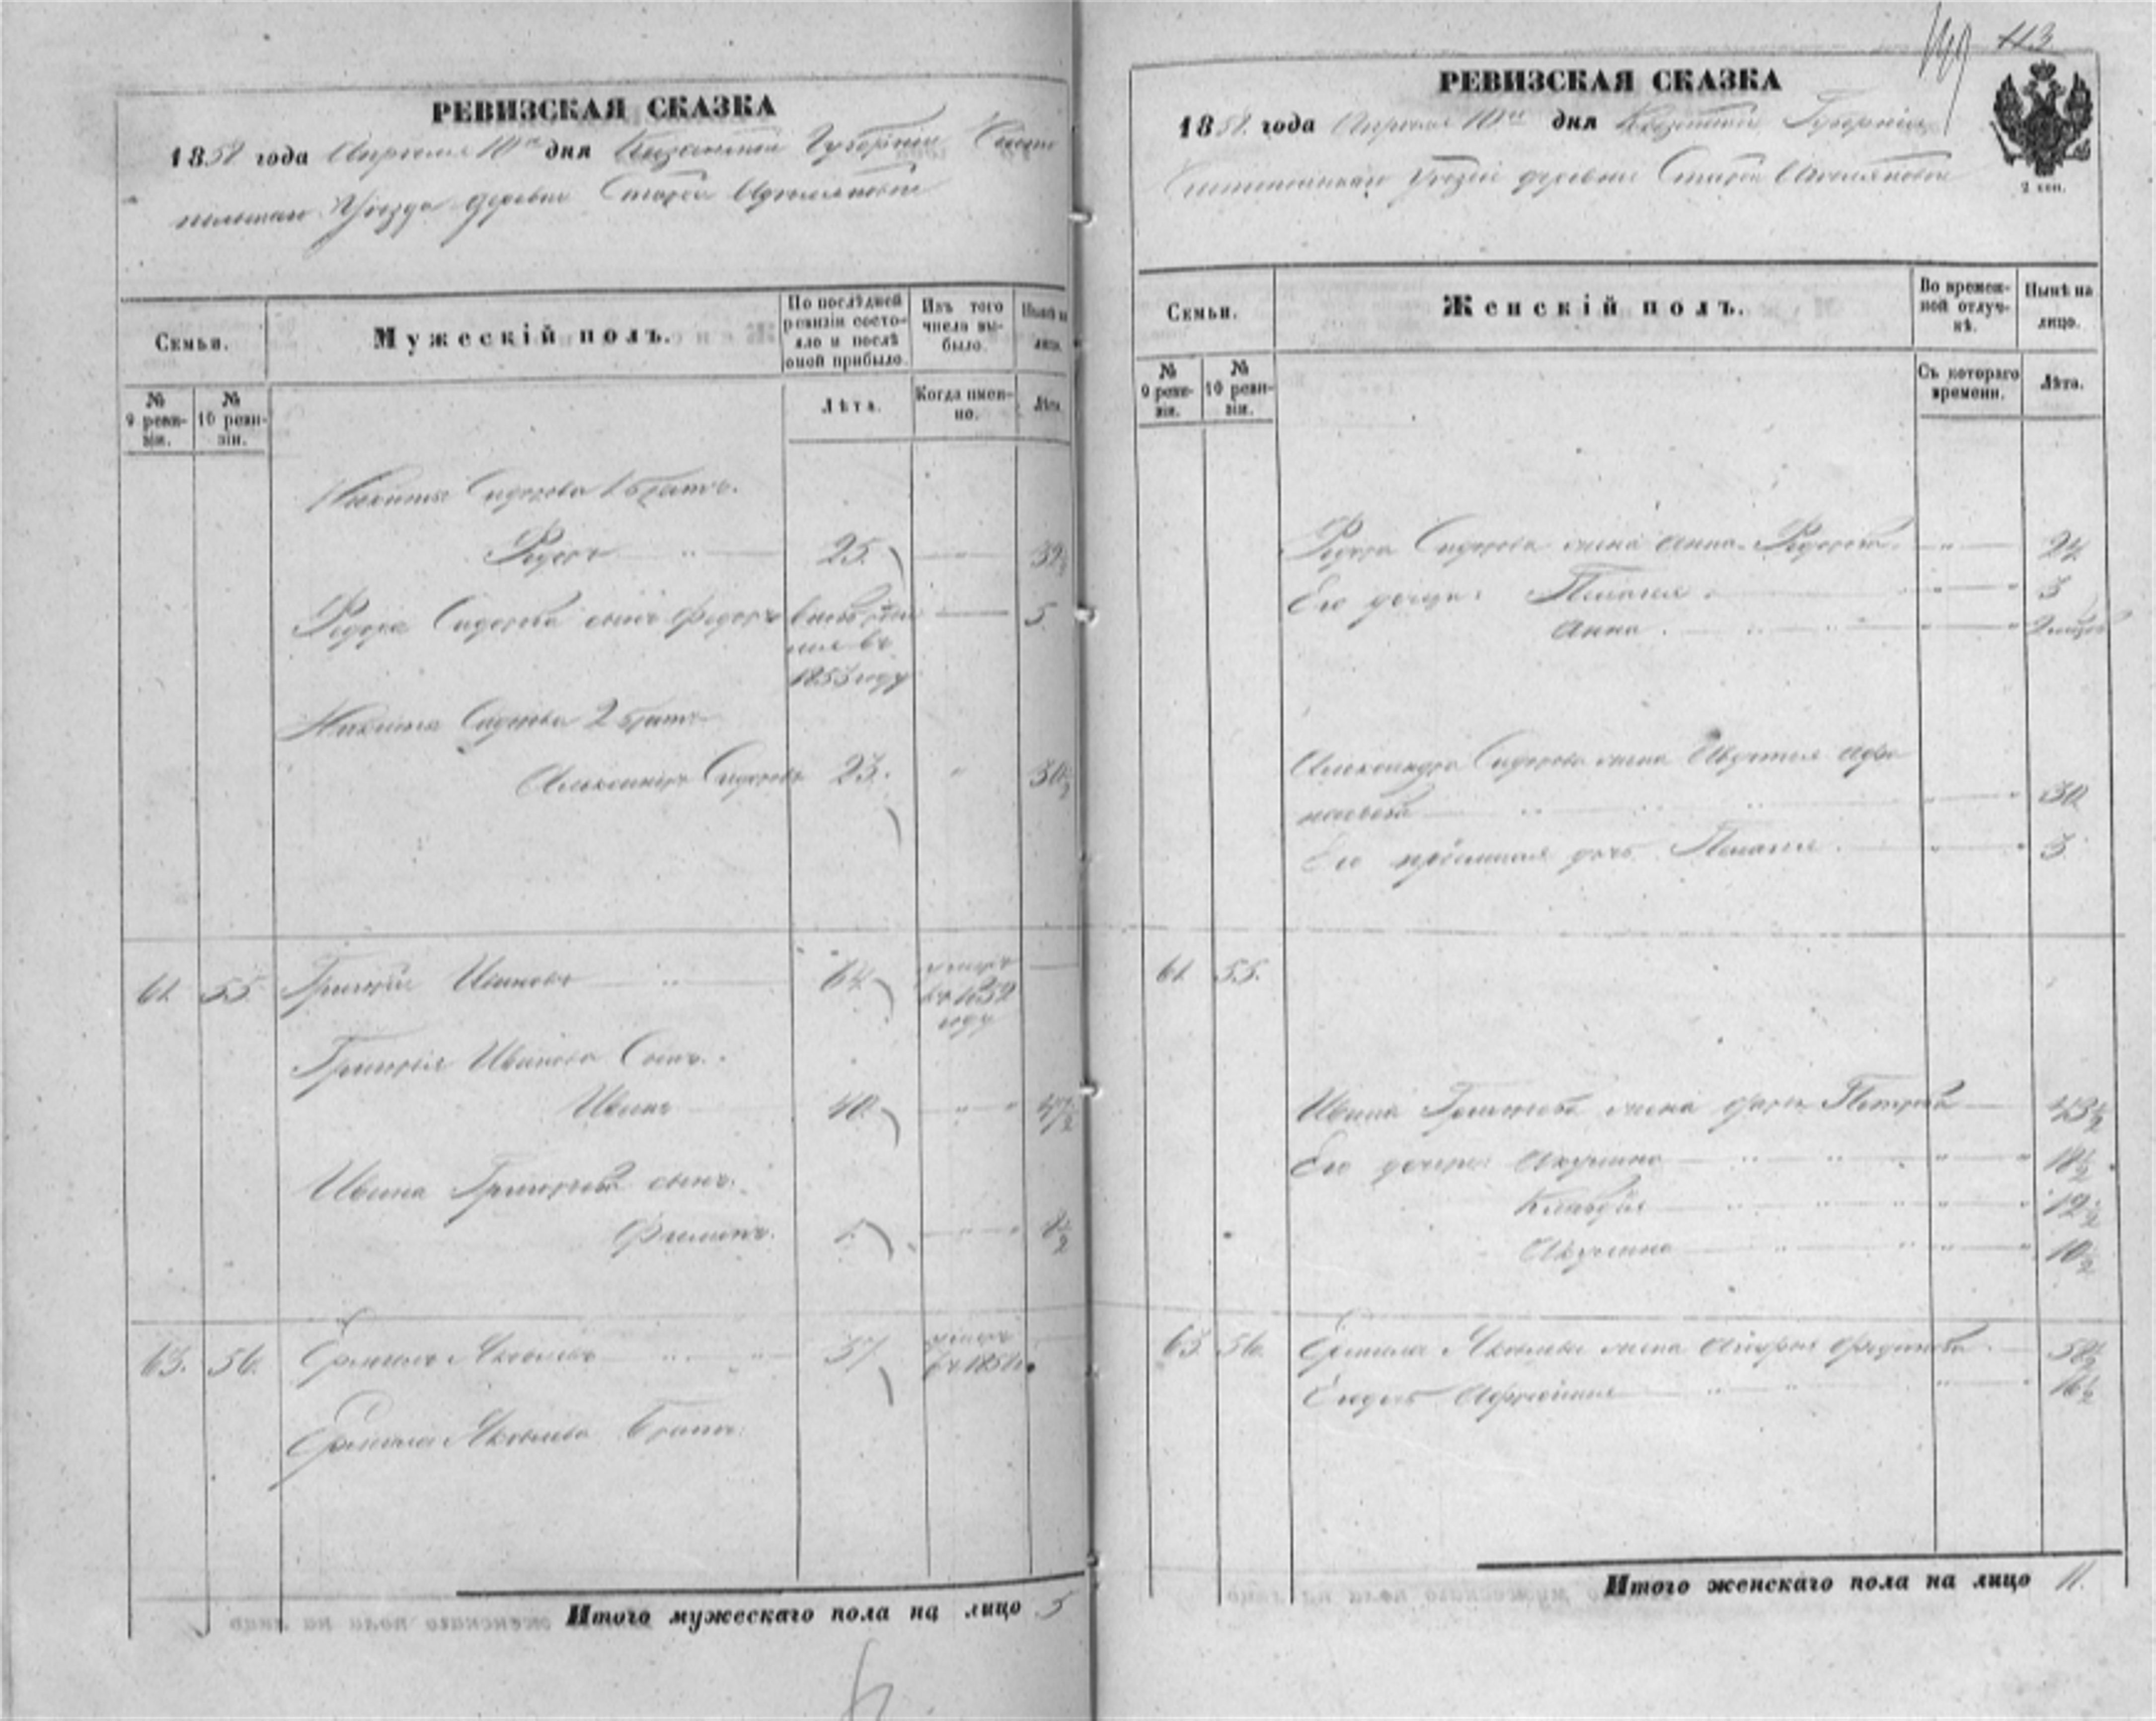 113
РЕВИЗСКАЯ СКАЗКА
1858 года Апреля 10го дня Казанской Губернии Чисто
польскаго Уезда деревни Старой
Семьи.
Мужескій полъ.
По послѣдней ревизіи состояло и послѣ оной прибыло.
Изъ того числа выбыло.
Нынѣ на лицо.
№ 9 ревизіи.
№ 10 ревизіи.
Лѣта.
Когда именно.
Лѣта.
Никиты Сидорова 1 братъ.
Федоръ 25. 32½
Федора Сидорова сынъ Федоръ 5
1853 году
Никиты Сидорова 2 братъ
Александръ Сидоровъ 23. 30½
61. 55. Григорій Ивановъ 64 умеръ въ 1852 году
Григорія Иванова Сынъ.
Иванъ 40. 47½
Ивана Григорьева сынъ.
Филипъ.
63. 56. Ермилъ Яковлевъ 51 умеръ
Ермила Яковлева братъ
Итого мужескаго пола на лицо 5
РЕВИЗСКАЯ СКАЗКА
1858 года Апреля 10го дня Казанской Губернии
Чистопольскаго Уезда деревни Старой
2 коп.
Семьи.
Женскій полъ.
Во временной отлучкѣ.
Нынѣ на лицо.
№ 9 ревизіи.
№ 10 ревизіи.
Съ котораго времени.
Лѣта.
Федора Сидорова жена Анна Федорова 24
Его дочери: Пелагея 3
Анна.
Александра Сидорова жена Авдотья Афо
насьева 30
Его пріемная дочь Пелагея. 3
61. 55.
Ивана Григорьева жена Петрова 43½
Его дочери: Акулина 18½
Клавдія 12½
Акулина 10½
63 56. Ермила Яковлева жена 58½
16½
Итого женскаго пола на лицо 11.